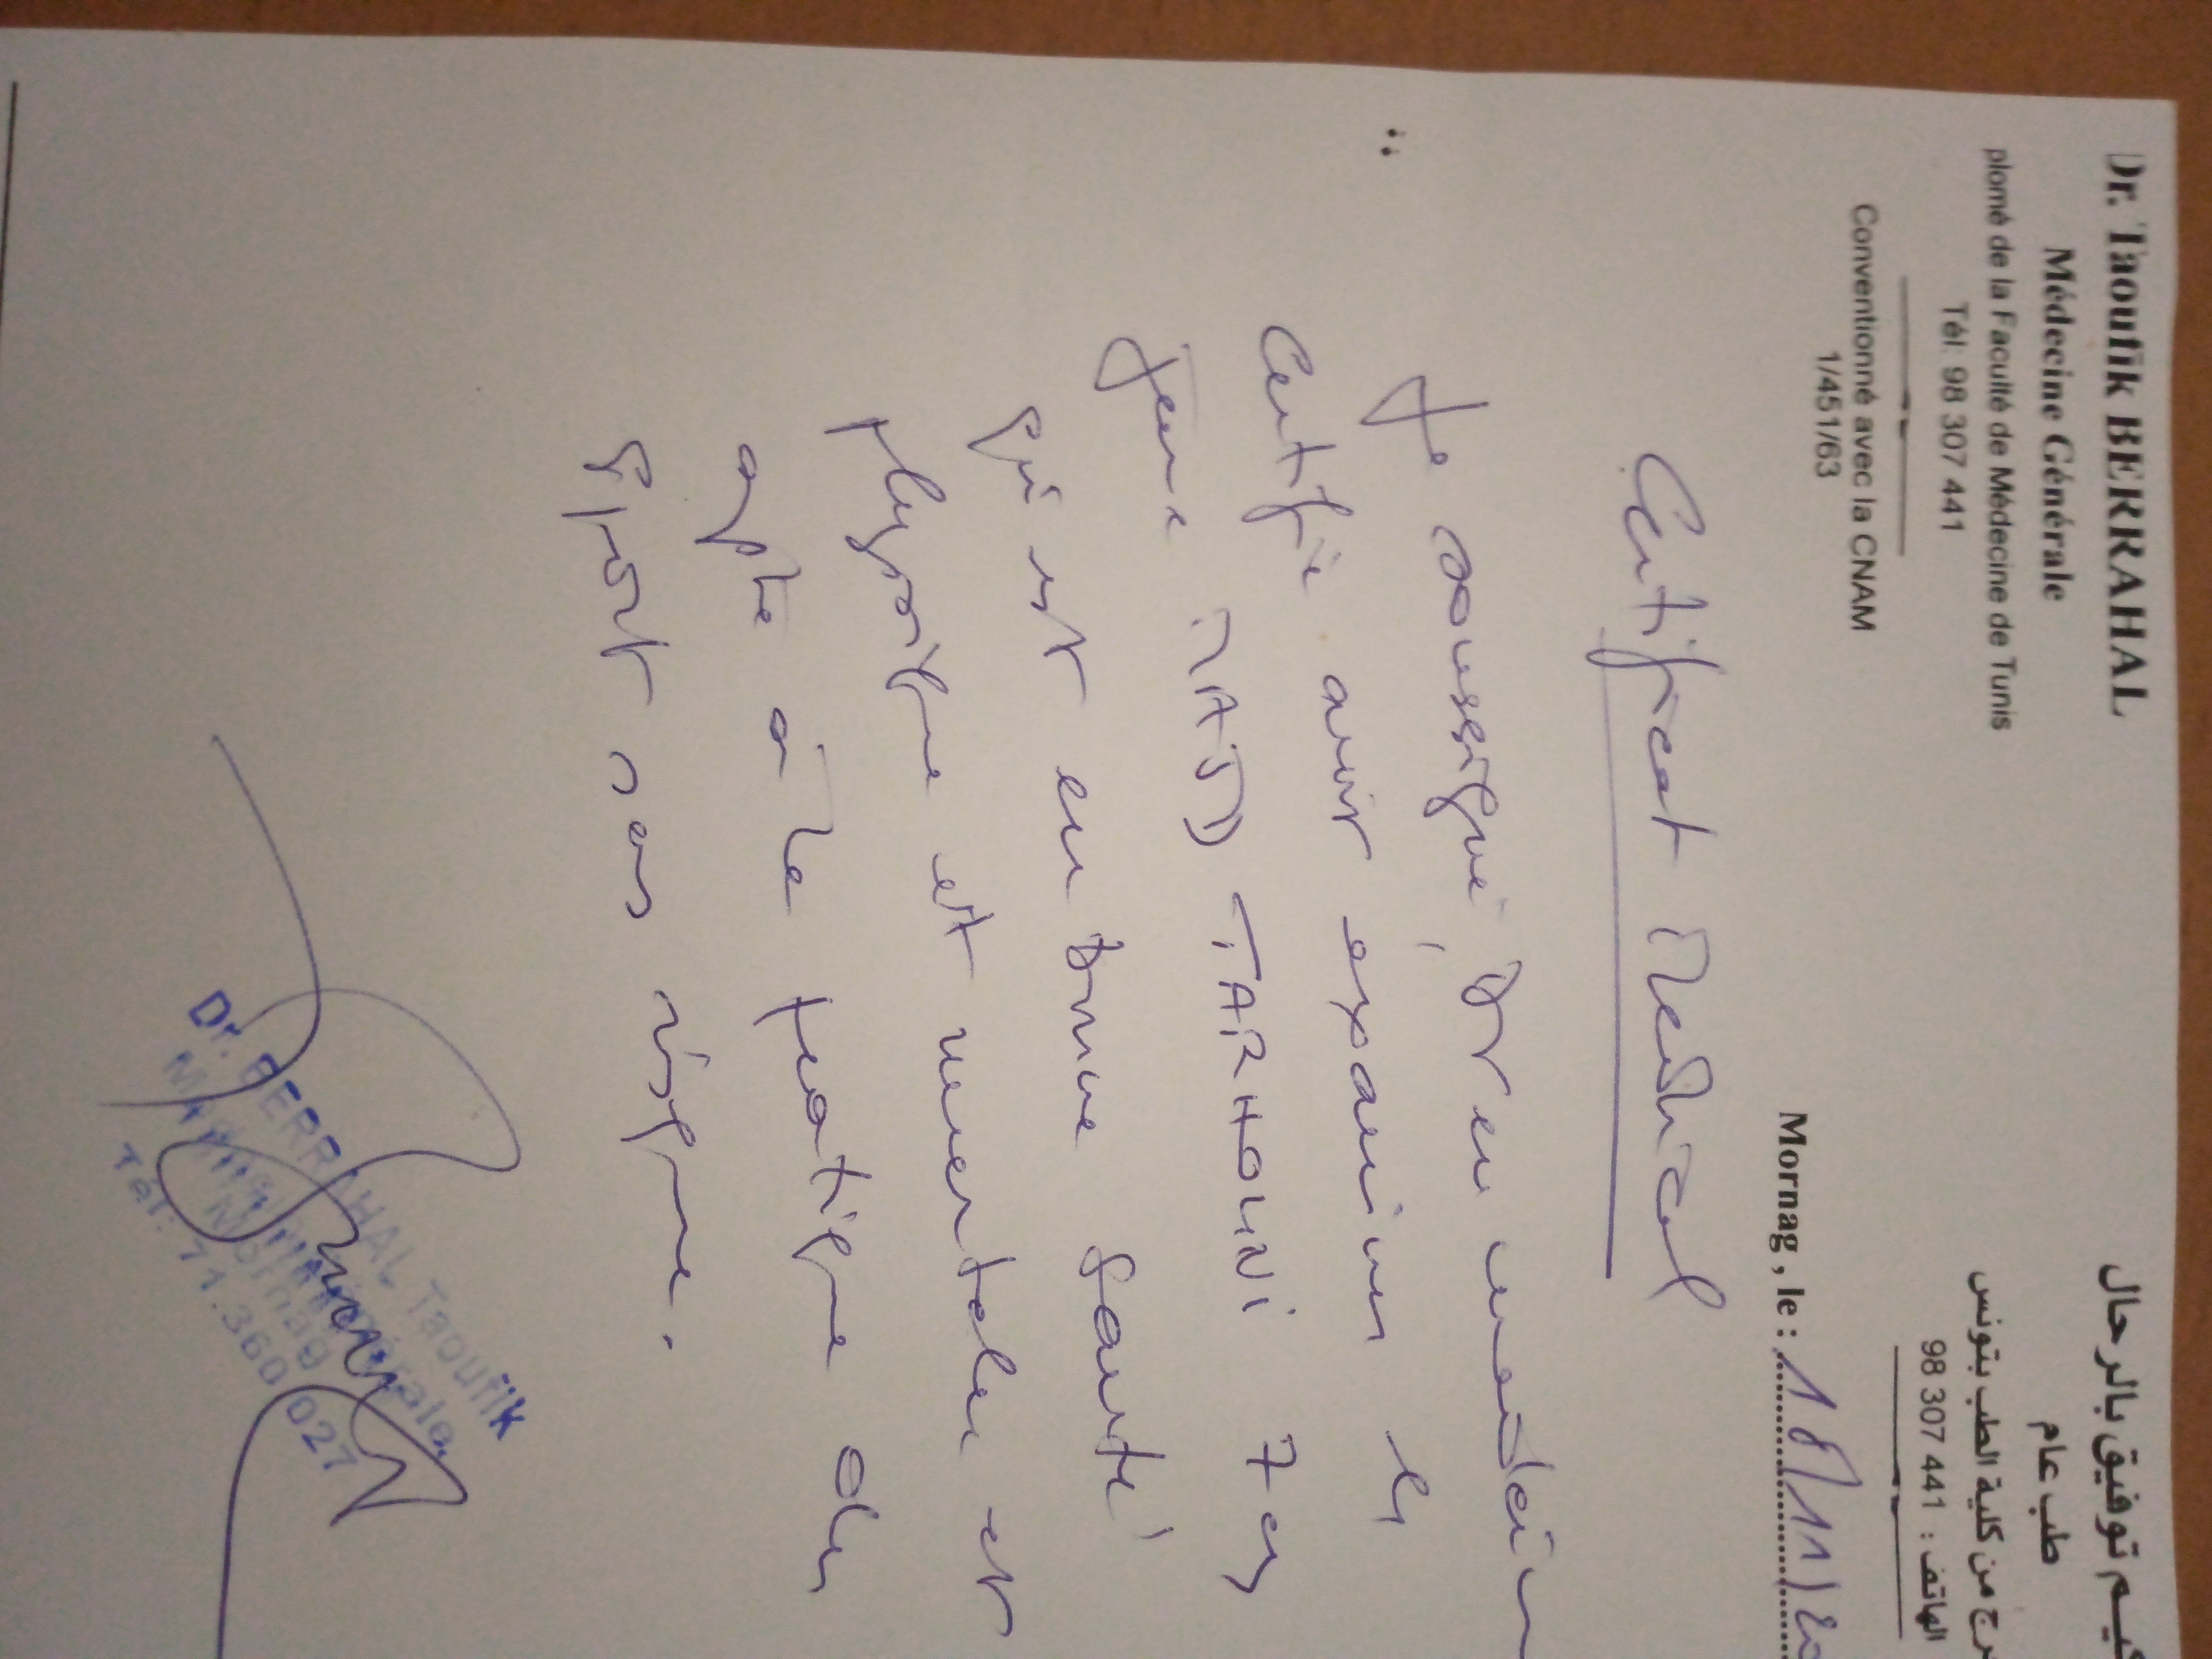 Dr. Taoufik BERRAHAL
Médecine Générale
plomé de la Faculté de Médecine de Tunis
Tél: 98 307 441
Conventionné avec la CNAM
1/451/63
كيـم توفيق بالرحال
طب عام
رج من كلية الطب بتونس
الهاتف : 441 307 98
Mornag , le : 18/11/20
Certificat Médical
Je soussigné, Dr en médecin
Certifie avoir examiné le
jeune MAJD TARHOUNI 7 ans
qui est en bonne santé
physique et mentale et
apte à la pratique du
sport sans risque.
Dr. BERRAHAL Taoufik
Mornag
Tél: 71.360 027